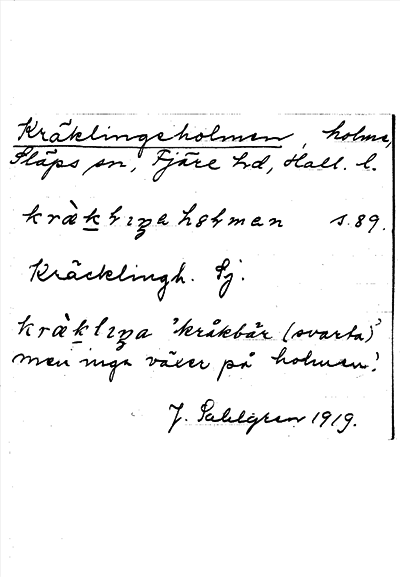 Kräklingeholmen, holme,
Släps sn, Fjäre hd, Hall. l.
s. 89.
Kräcklingh. Sj.
'kråkbär (svarta)'
men inga växer på holmen!
J. Sahlgren 1919.